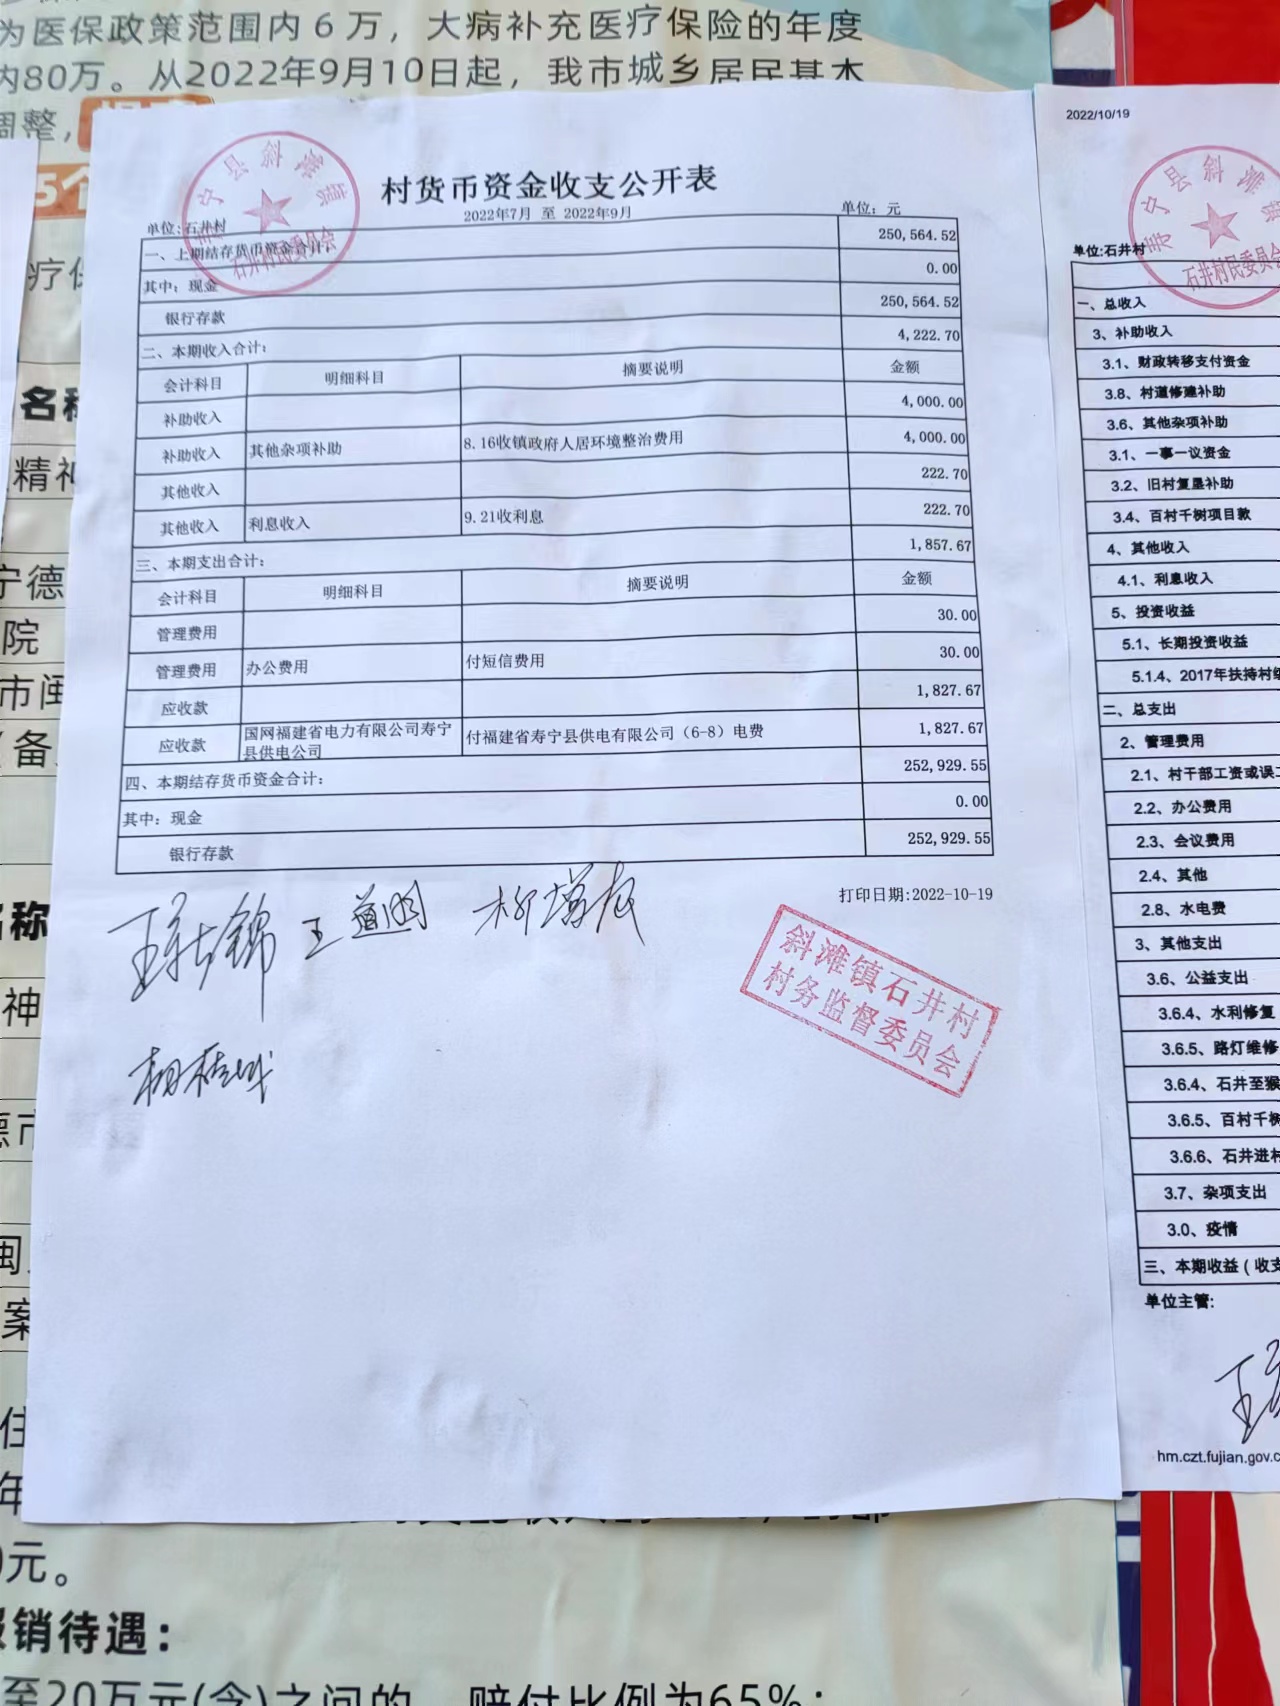 为医保政策范围内6万，大病补充医疗保险的年度
内80万。从2022年9月10日起，我市城乡居民基本
调整，
5个
寿宁县斜滩镇
石井村民委员会
村货币资金收支公开表
2022年7月 至 2022年9月
单位:石井村
单位：元
一、上期结存货币资金合计： 250,564.52
其中：现金 0.00
银行存款 250,564.52
二、本期收入合计： 4,222.70
会计科目 明细科目 摘要说明 金额
补助收入 4,000.00
补助收入 其他杂项补助 8.16收镇政府人居环境整治费用 4,000.00
其他收入 222.70
其他收入 利息收入 9.21收利息 222.70
三、本期支出合计： 1,857.67
会计科目 明细科目 摘要说明 金额
管理费用 30.00
管理费用 办公费用 付短信费用 30.00
应收款 1,827.67
应收款 国网福建省电力有限公司寿宁县供电公司 付福建省寿宁县供电有限公司（6-8）电费 1,827.67
四、本期结存货币资金合计： 252,929.55
其中：现金 0.00
银行存款 252,929.55
打印日期:2022-10-19
王道明
斜滩镇石井村
村务监督委员会
2022/10/19
寿宁县斜滩
石井村民委员会
单位:石井村
一、总收入
3、补助收入
3.1、财政转移支付资金
3.8、村道修建补助
3.6、其他杂项补助
3.1、一事一议资金
3.2、旧村复垦补助
3.4、百村千树项目款
4、其他收入
4.1、利息收入
5、投资收益
5.1、长期投资收益
5.1.4、2017年扶持村级
二、总支出
2、管理费用
2.1、村干部工资或误工
2.2、办公费用
2.3、会议费用
2.4、其他
2.8、水电费
3、其他支出
3.6、公益支出
3.6.4、水利修复
3.6.5、路灯维修
3.6.4、石井至猴
3.6.5、百村千树
3.6.6、石井进村
3.7、杂项支出
3.0、疫情
三、本期收益（收支
单位主管:
hm.czt.fujian.gov.c
疗保
名称
精神
宁德
院
市闽
（备
名称
神
德市
闽
案
住
年
0元。
报销待遇：
至20万元(含)之间的，赔付比例为65%；